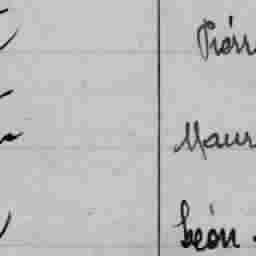 Pierr
Maur
Léon